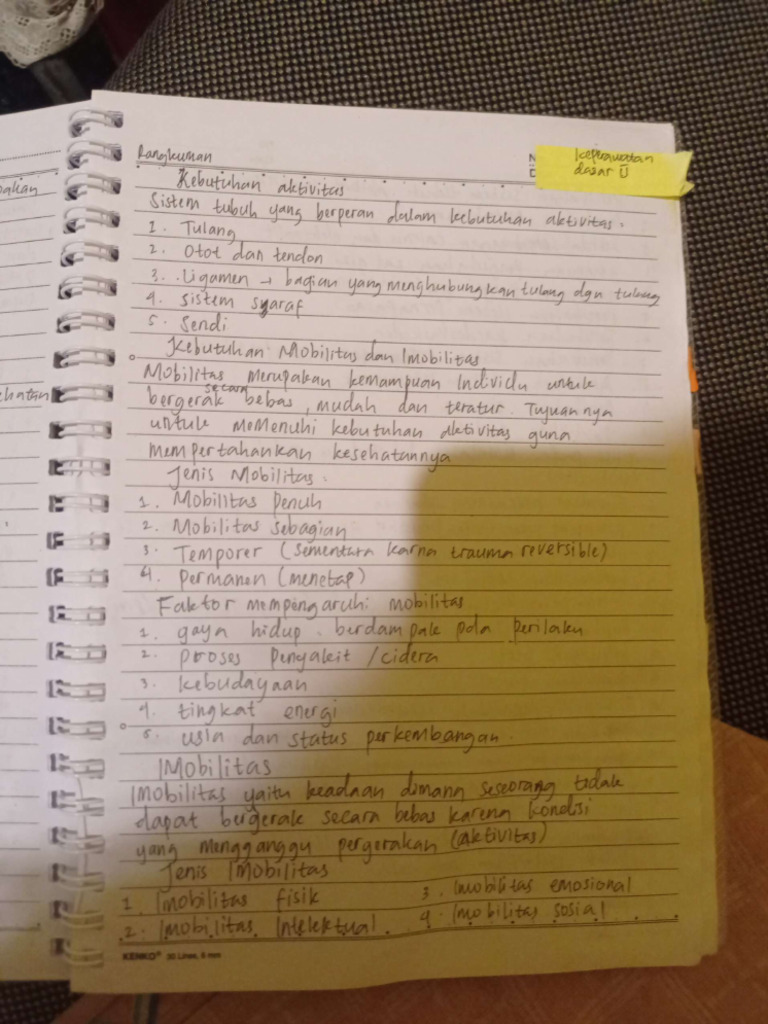 Rangkuman
keperawatan
dasar Ū
Kebutuhan aktivitas
Sistem tubuh yang berperan dalam kebutuhan aktivitas.
1. Tulang
2. Otot dan tendon
3. Ligamen → bagian yang menghubungkan tulang dgn tulang
4. Sistem syaraf
5. Sendi
Kebutuhan Mobilitas dan Imobilitas
Mobilitas merupakan kemampuan Individu untuk
bergerak secara bebas, mudah dan teratur. Tujuannya
untuk memenuhi kebutuhan aktivitas guna
mempertahankan kesehatannya
Jenis Mobilitas.
1. Mobilitas penuh
2. Mobilitas sebagian
3. Temporer (sementara karna trauma reversible)
4. permanen (menetap)
Faktor mempengaruhi mobilitas
1. gaya hidup. berdampak pola perilaku
2. proses penyakit / cidera
3. kebudayaan
4. tingkat energi
5. usia dan status perkembangan.
IMobilitas
IMobilitas yaitu keadaan dimana seseorang tidak
dapat bergerak secara bebas karena kondisi
yang mengganggu pergerakan (aktivitas)
Jenis IMobilitas
1. Imobilitas fisik
2. Imobilitas Intelektual.
3. Imobilitas emosional
4. Imobilitas sosial
KENKO® 30 Lines, 8 mm